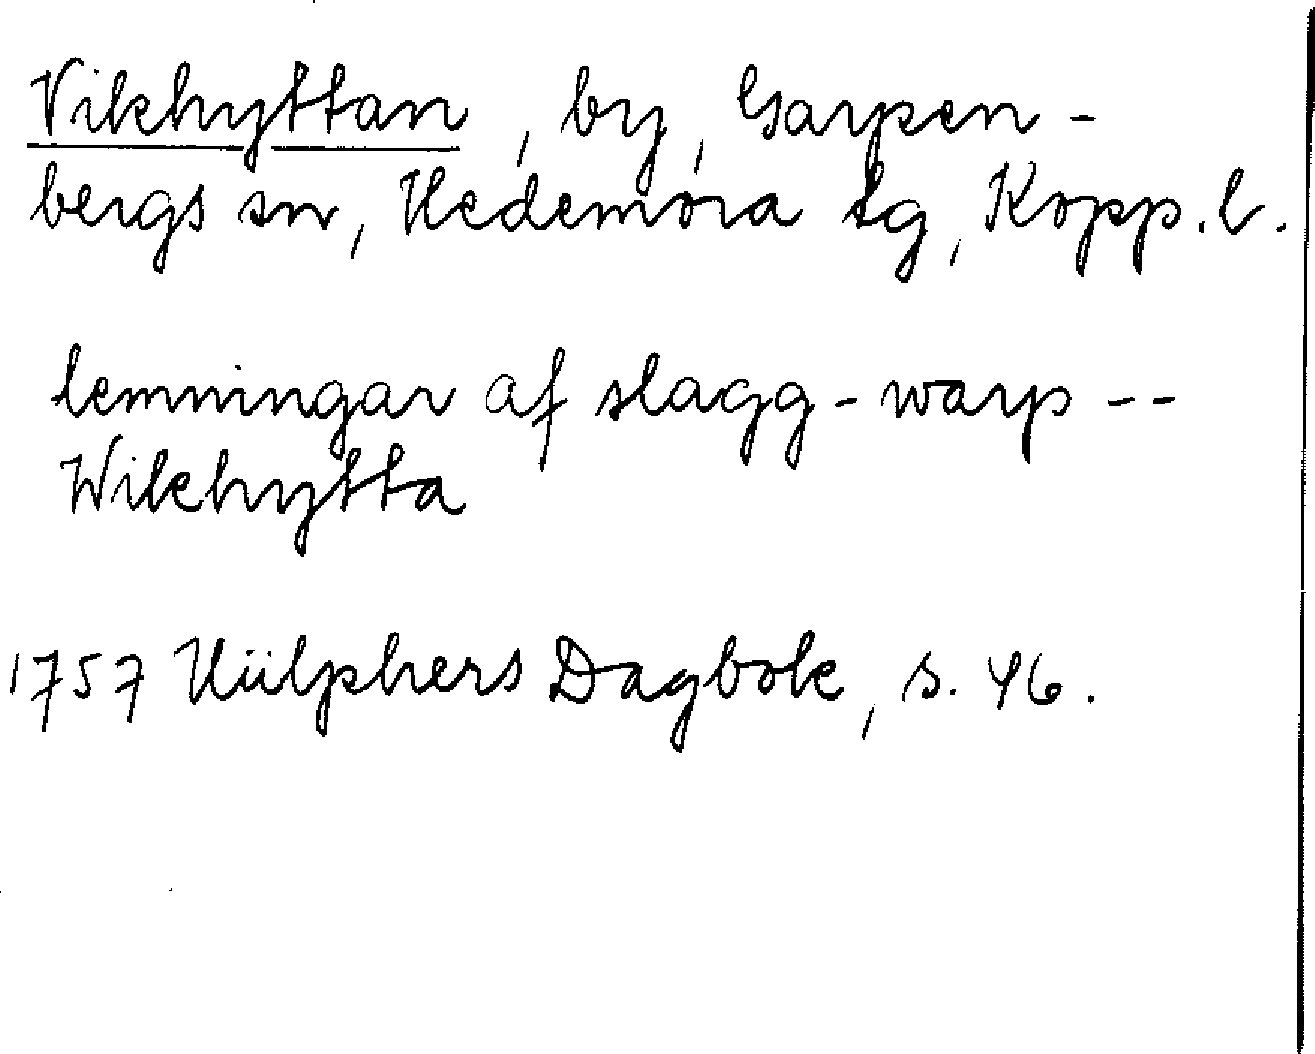 Vikhyttan, by, Garpen-
bergs sn, Hedemora tg, Kopp.l.
lemningar af slagg-warp --
Wikhytta
1757 Hülphers Dagbok, s. 46.